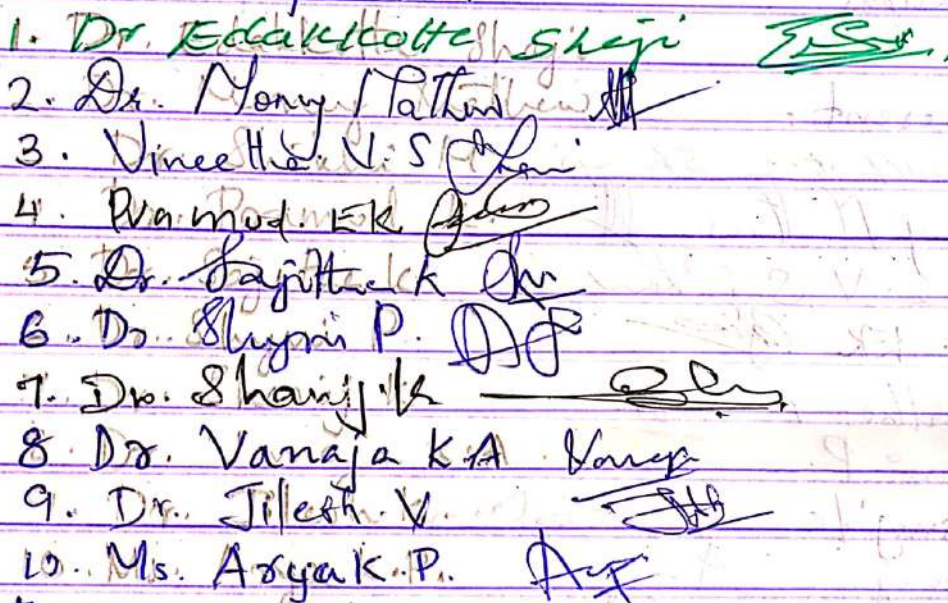 1. Dr. Edakkotte Shaji
2. Dr. Mony Mathew
3. Vineetha. V. S
4. Pramod. EK
5. Dr. Sajitha. K
6. Dr. Shyni P.
7. Dr. Shanij. K
8. Dr. Vanaja K.A Vanaja
9. Dr. Jilesh. V.
10. Ms. Arya K. P.